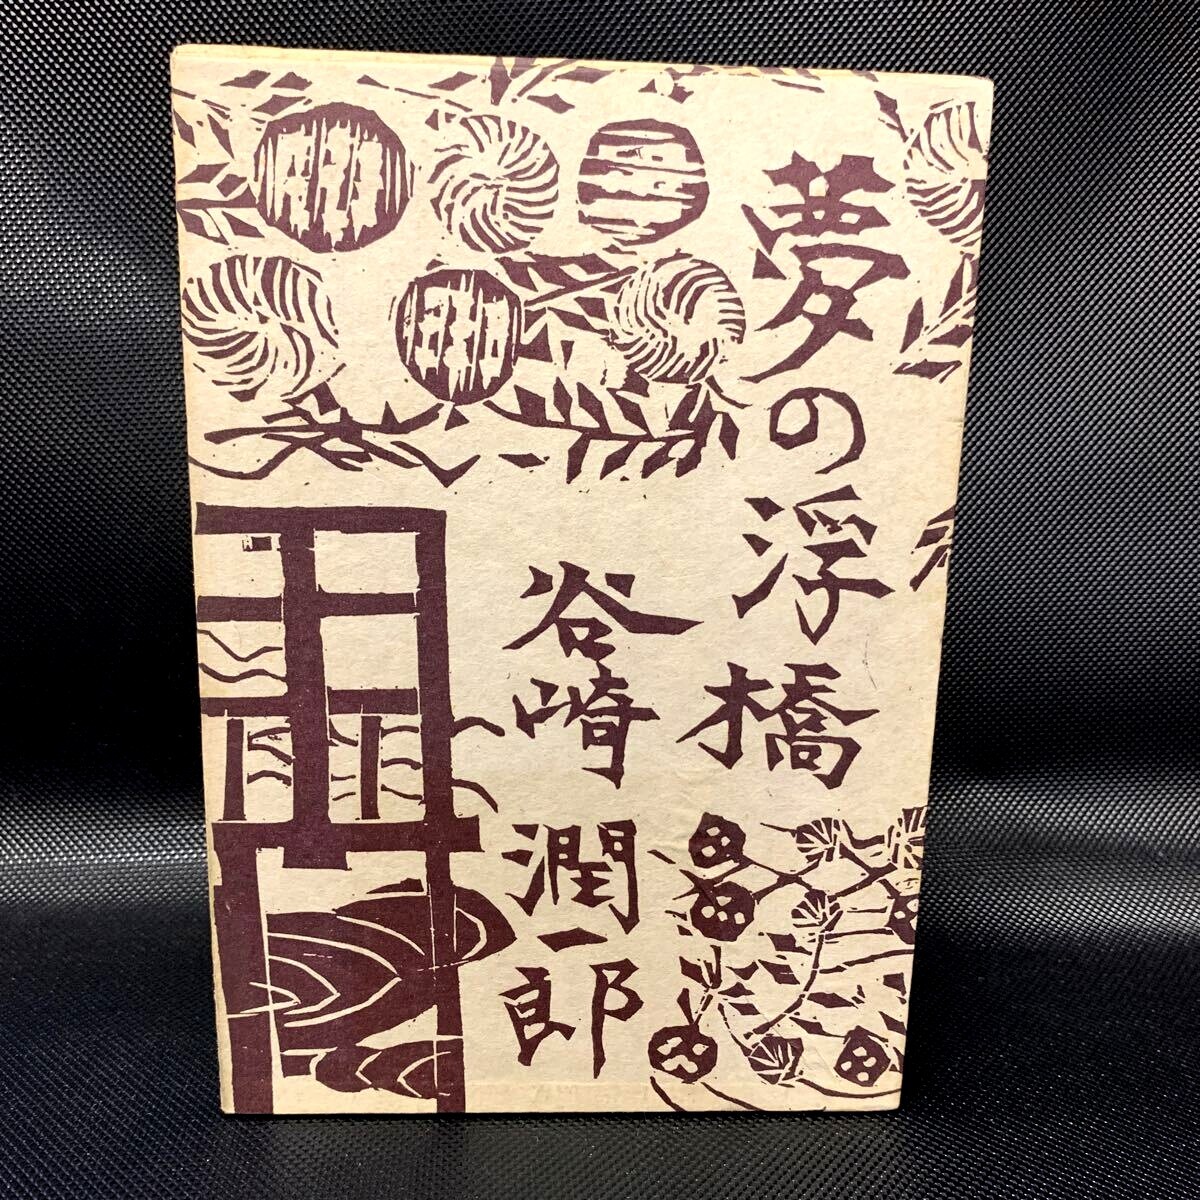 夢の浮橋
谷崎潤一郎